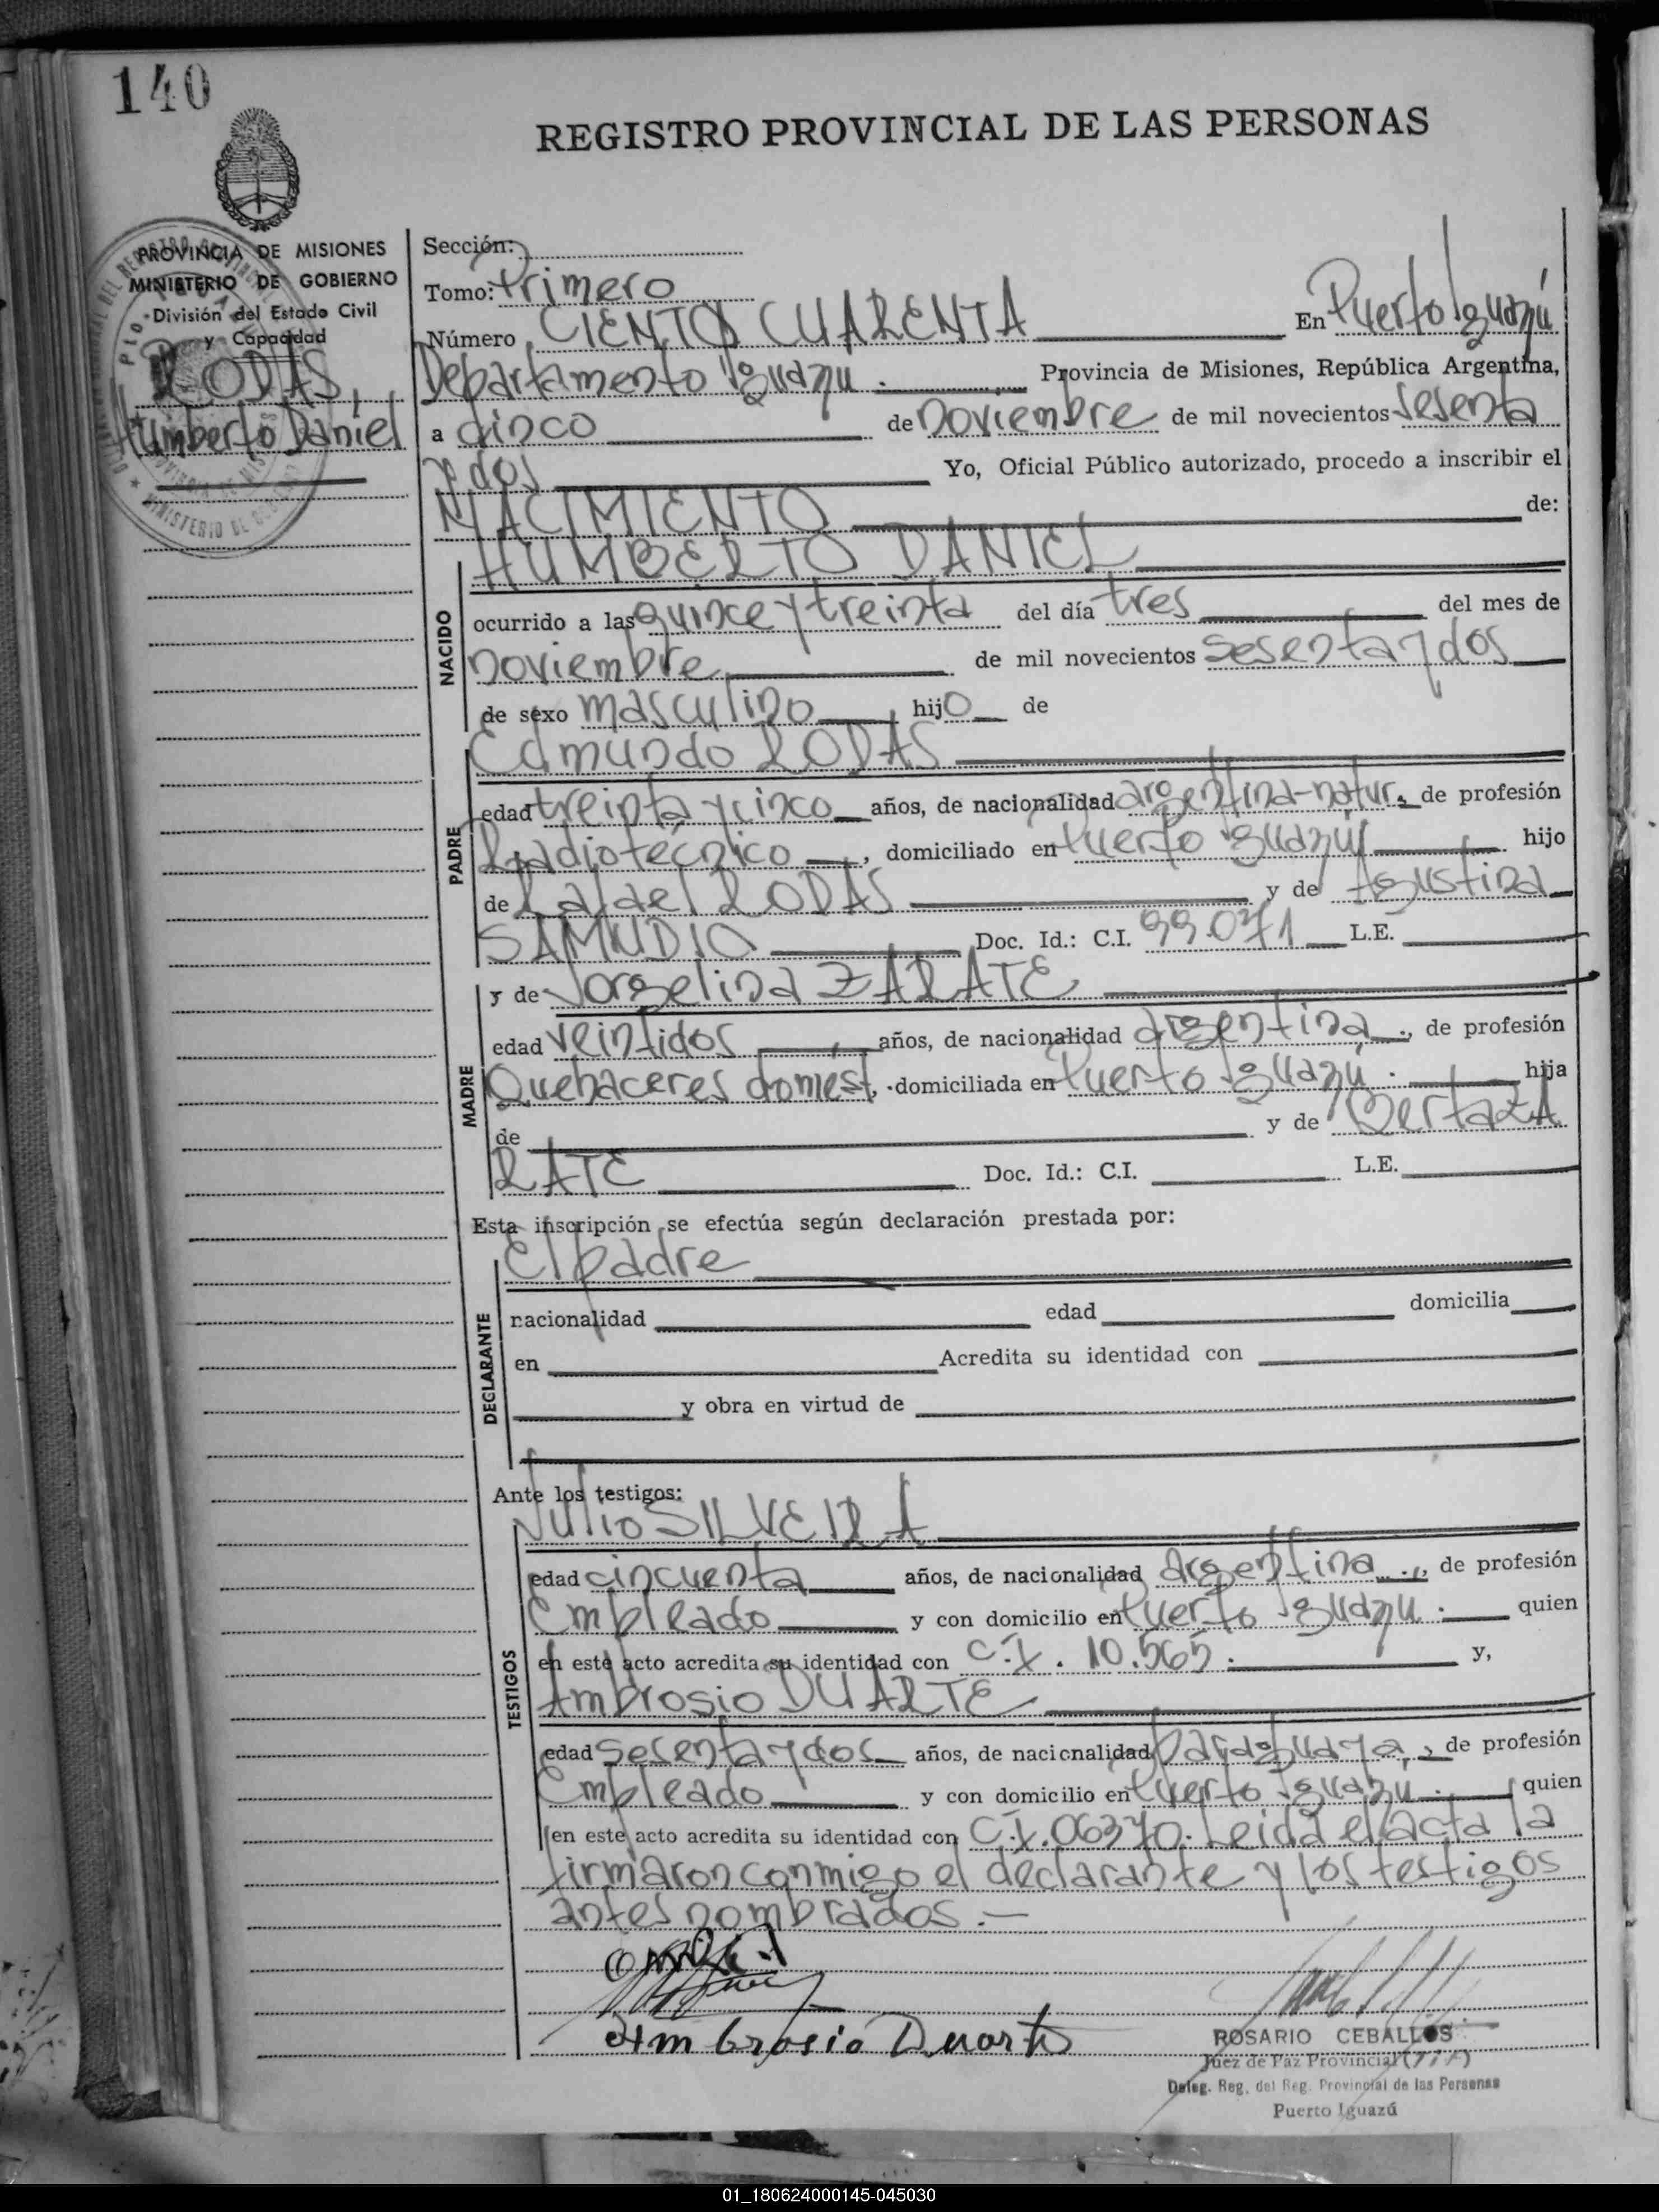 140
REGISTRO PROVINCIAL DE LAS PERSONAS
PROVINCIA DE MISIONES
MINISTERIO DE GOBIERNO
División del Estado Civil
y Capacidad
RODAS,
Humberto Daniel
Sección:
Tomo: Primero
Número CIENTO CUARENTA En Puerto Iguazú
Departamento Iguazu. Provincia de Misiones, República Argentina,
a cinco de noviembre de mil novecientos sesenta
y dos Yo, Oficial Público autorizado, procedo a inscribir el
NACIMIENTO de:
HUMBERTO DANIEL
NACIDO
ocurrido a las quince y treinta del día tres del mes de
noviembre de mil novecientos sesenta y dos
de sexo masculino hijo de
Edmundo RODAS
PADRE
edad treinta y cinco años, de nacionalidad argentina-natur. de profesión
Radiotécnico, domiciliado en Puerto Iguazú hijo
de Rafael RODAS y de Agustina
SAMUDIO Doc. Id.: C.I. 99.071 L.E.
y de Jorgelina ZARATE
MADRE
edad veintidos, años, de nacionalidad argentina., de profesión
Quehaceres domest, domiciliada en Puerto Iguazú. hija
de y de Berta ZA
RATE Doc. Id.: C.I. L.E.
Esta inscripción se efectúa según declaración prestada por:
El padre
DECLARANTE
nacionalidad edad domicilia
en Acredita su identidad con
y obra en virtud de
Ante los testigos:
Julio SILVEIRA
TESTIGOS
edad cincuenta años, de nacionalidad argentina., de profesión
Empleado y con domicilio en Puerto Iguazu. quien
en este acto acredita su identidad con C.I. 10.565. y,
Ambrosio DUARTE
edad sesenta y dos años, de nacionalidad paraguaya, de profesión
Empleado y con domicilio en Puerto Iguazu. quien
en este acto acredita su identidad con C.I. 06370. Leida el acta la
firmaron conmigo el declarante y los testigos
antes nombrados.—
Ambrosio Duarte
ROSARIO CEBALLOS
Juez de Paz Provincial
Deleg. Reg. del Reg. Provincial de las Personas
Puerto Iguazú
01_180624000145-045030